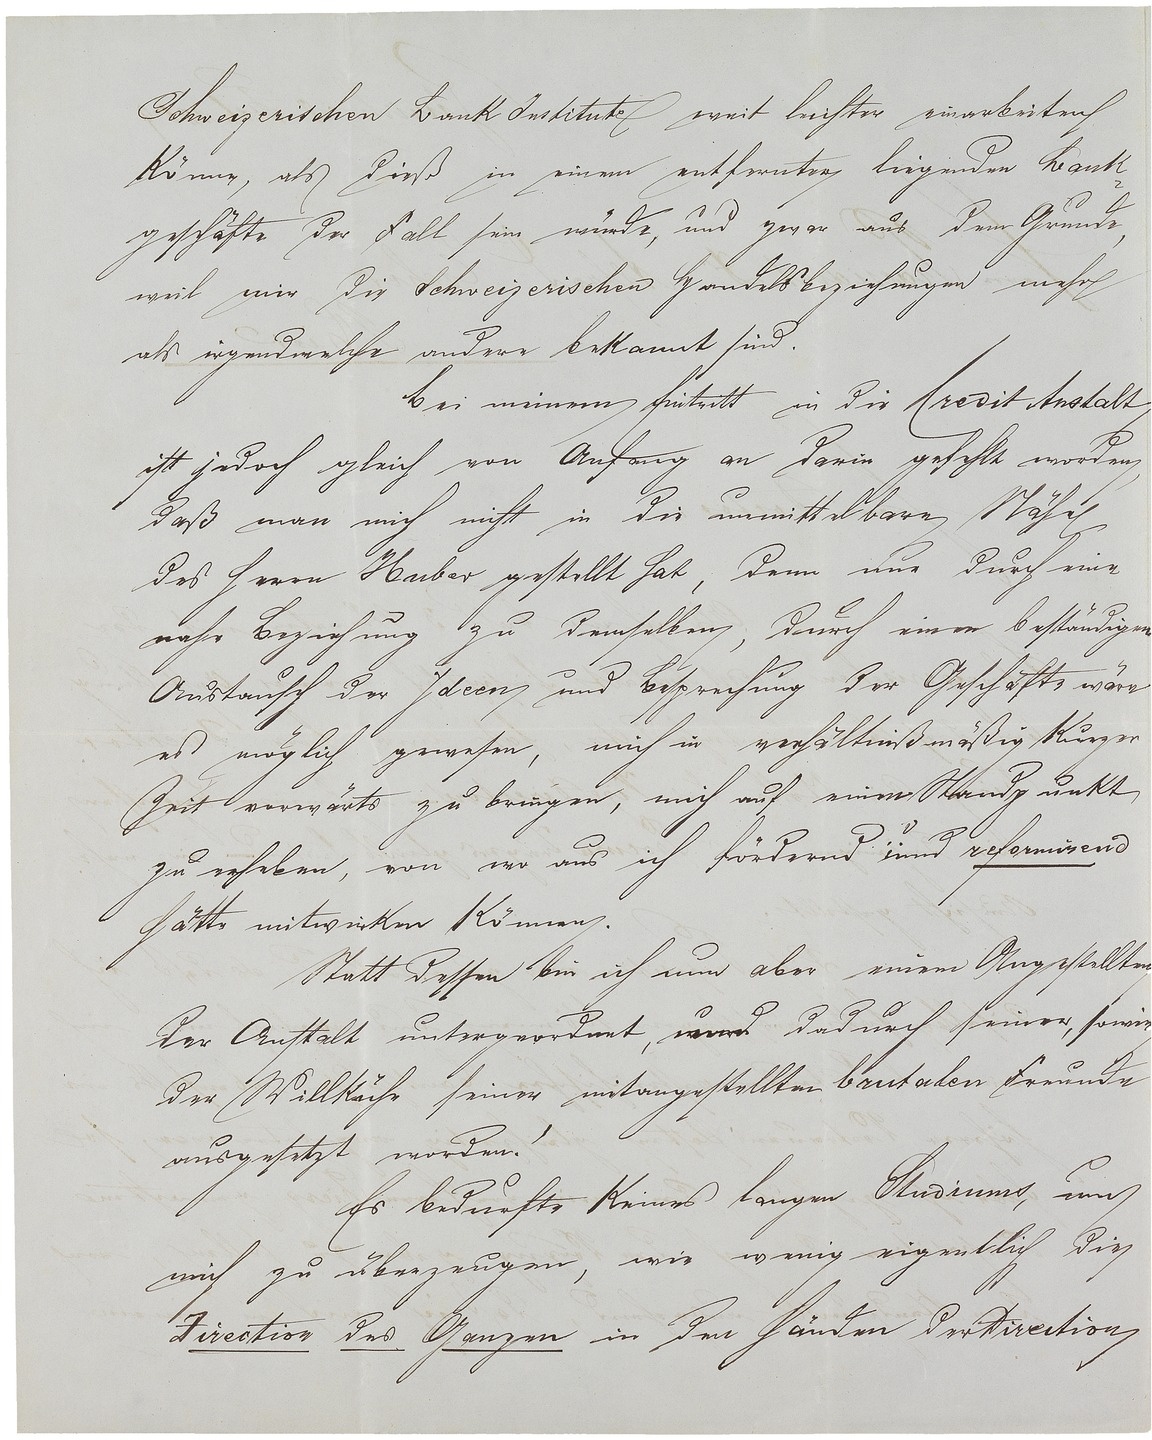 Schweizerischen Bank Institute weit leichter einarbeiten
könne, als dieß in einem entfernter liegenden Bank-
geschäfte der Fall sein würde, und zwar aus dem Grunde,
weil mir die Schweizerischen Handelsbeziehungen mehr
als irgendwelche andere bekannt sind.
Bei meinem Eintritt in die Credit Anstalt
ist jedoch gleich von Anfang an darin gefehlt worden,
daß man mich nicht in die unmittelbare Nähe
des Herrn Huber gestellt hat, denn nur durch eine
nahe Beziehung zu demselben, durch einen beständigen
Austausch der Ideen und Besprechung der Geschäfte wäre
es möglich gewesen, mich in verhältnißmäßig kurzer
Zeit vorwärts zu bringen, mich auf einen Standpunkt
zu erheben, von wo aus ich fördernd und reformirend
hätte mitwirken können.
Statt dessen bin ich nun aber einem Angestellten
der Anstalt untergeordnet, und dadurch seiner, sowie
der Willkühr seiner mitangestellten brutalen Freunde
ausgesetzt worden!
Es bedurfte keines langen Studiums, um
mich zu überzeugen, wie wenig eigentlich die
Direction des Ganzen in den Händen der Direction